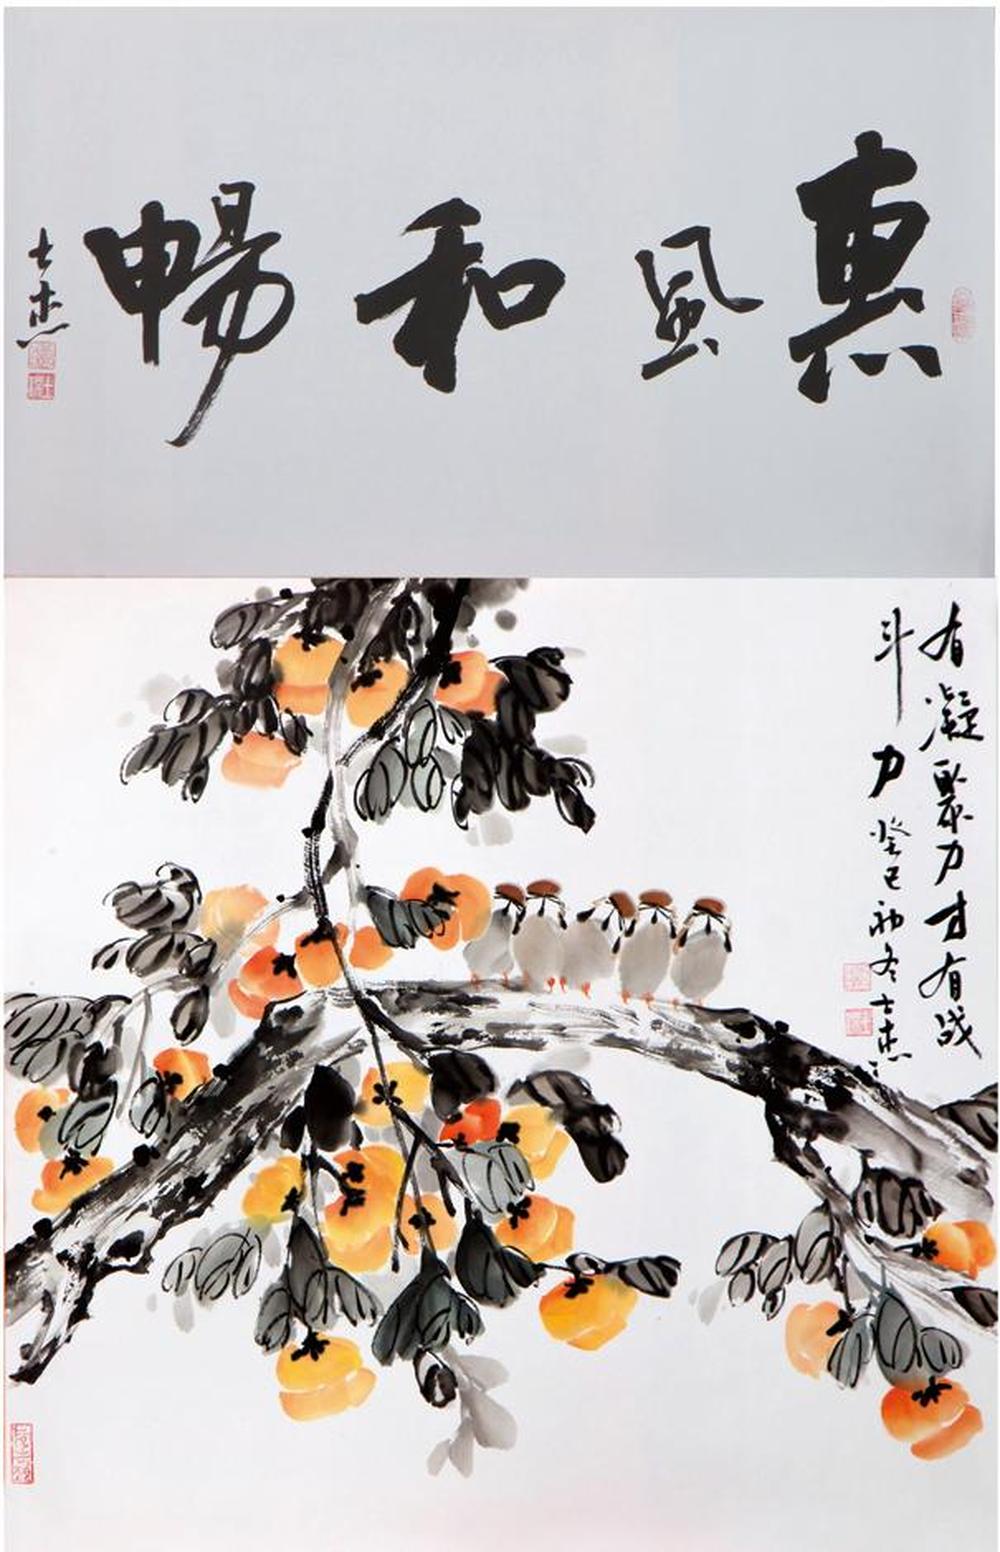 惠風和暢
士杰
有凝聚力才有战
斗力癸巳初冬士杰